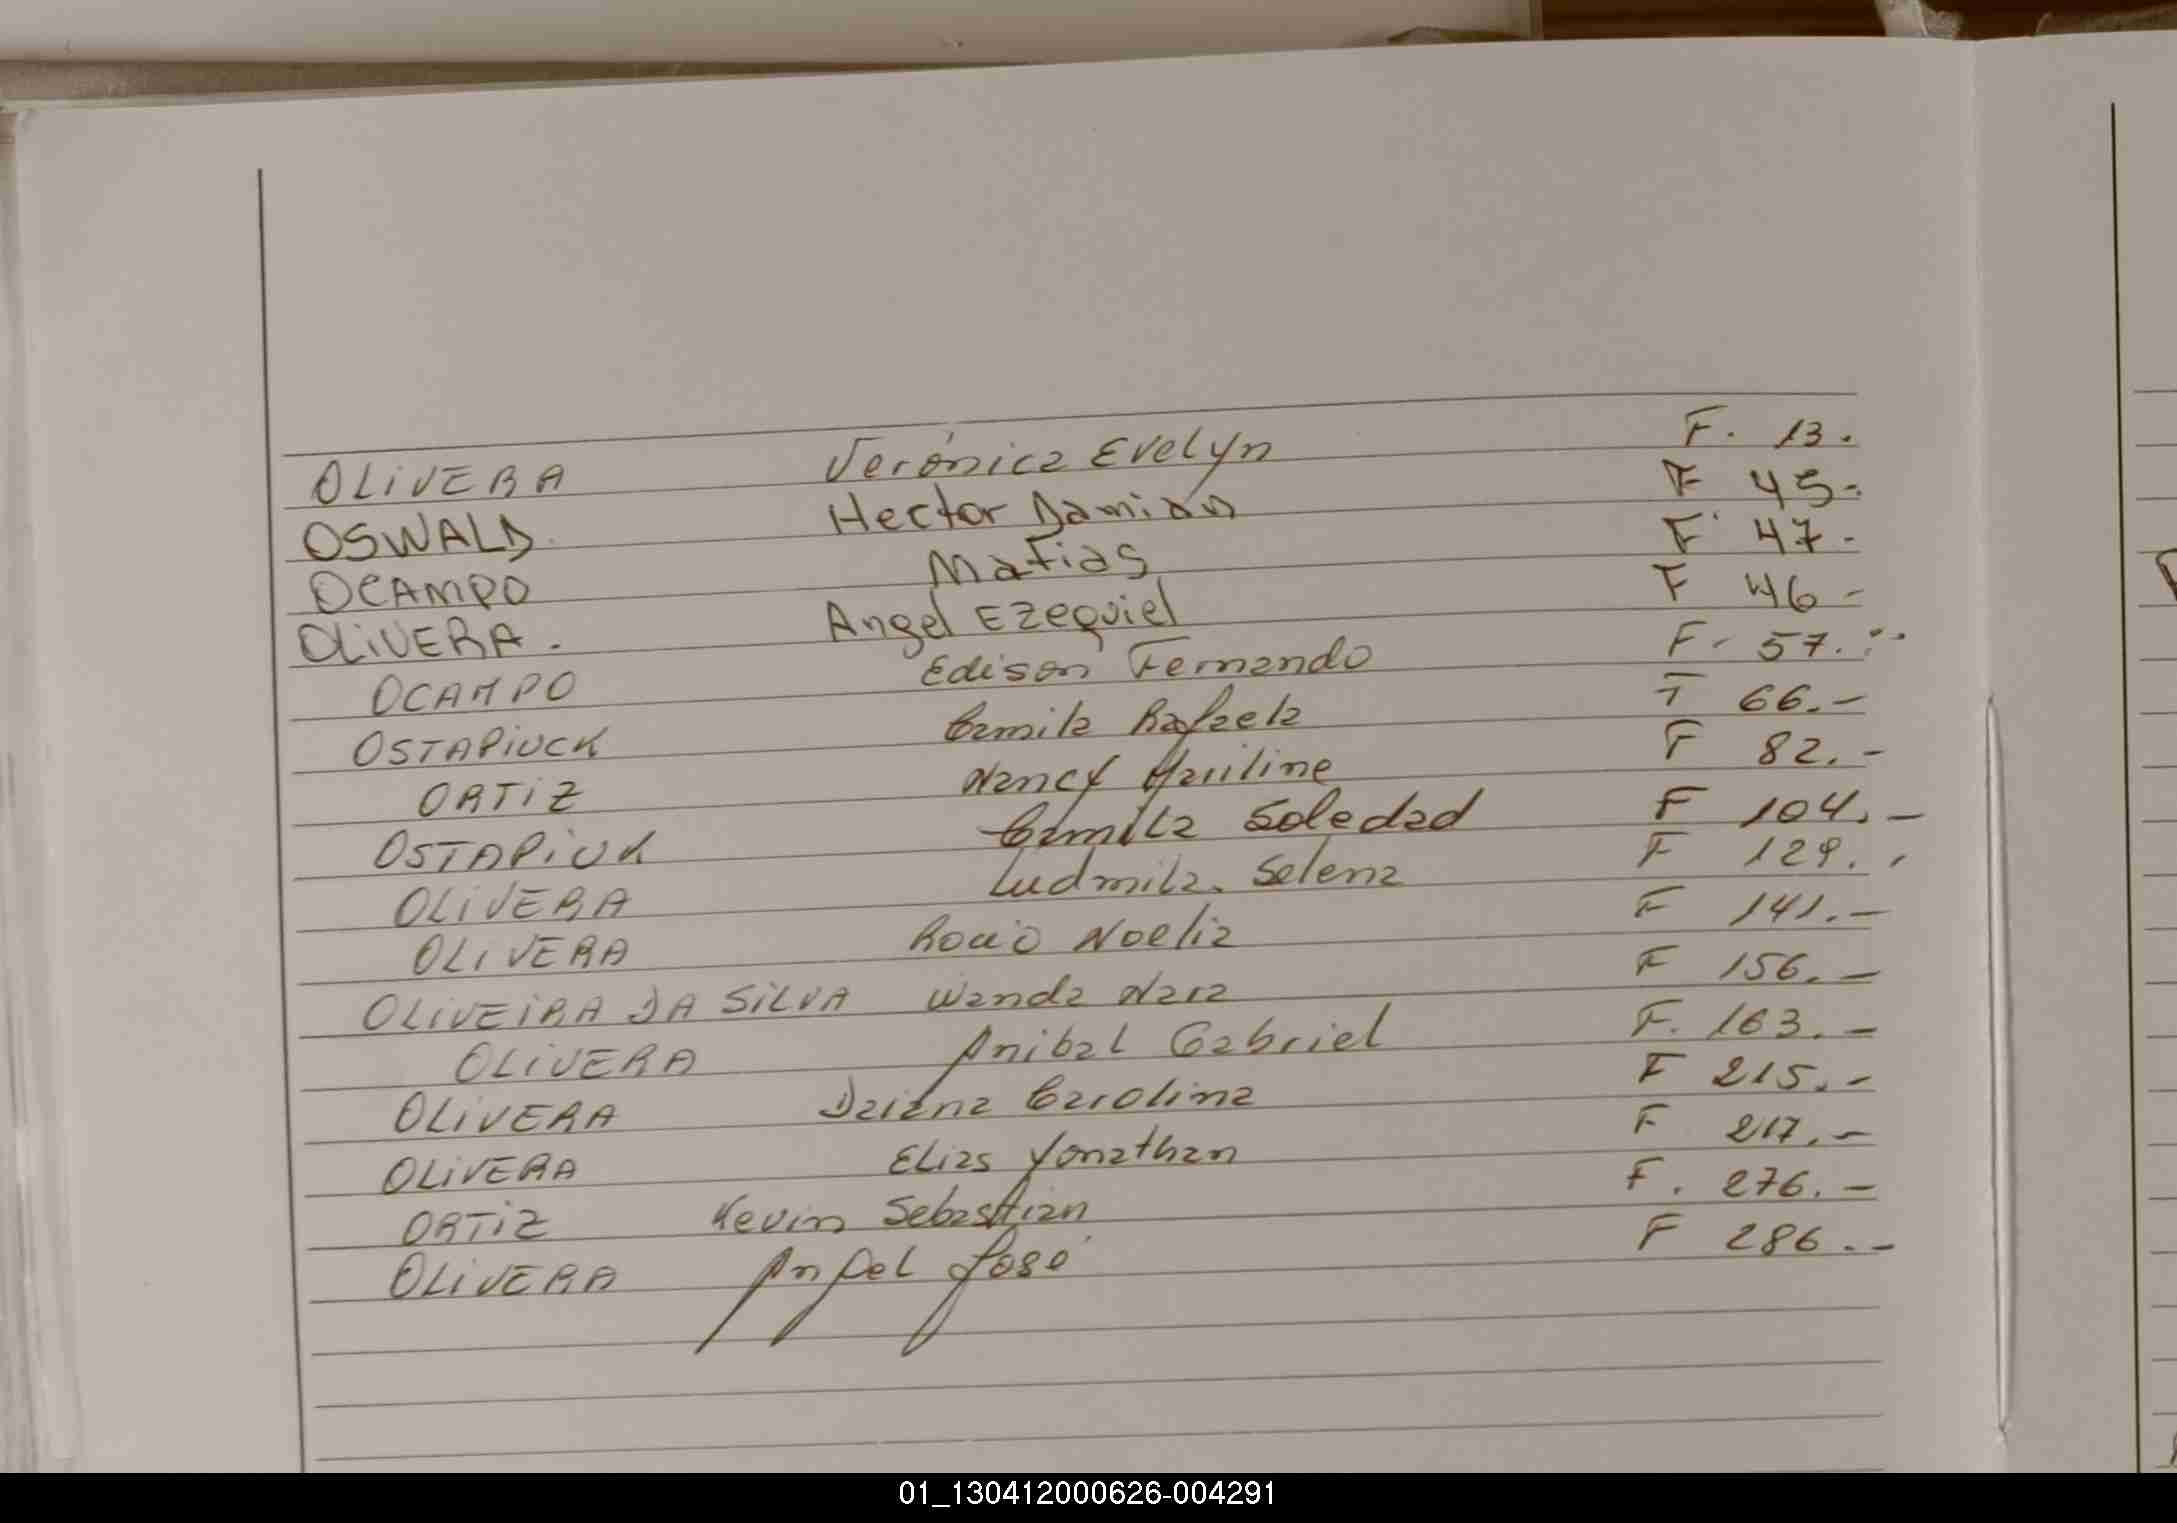 OLIVERA Verónica Evelyn F. 13.
OSWALD. Hector Damián F 45-
OCAMPO Matias F 47-
OLIVERA. Angel Ezequiel F 46-
OCAMPO Edison Fernando F- 57.
OSTAPIUCK Camila Rafaela F 66.-
ORTIZ Nancy F 82.-
OSTAPIUK Camila Soledad F 104.-
OLIVERA Ludmila. Selena F 129.
OLIVERA Rocio Noelia F 141.-
OLIVEIRA DA SILVA Wanda Nara F 156.-
OLIVERA Anibal Gabriel F. 163.-
OLIVERA Daiana Carolina F 215.-
OLIVERA Elias Yonathan F 217.-
ORTIZ Kevin Sebastian F. 276.-
OLIVERA Angel José F 286.-
01_130412000626-004291